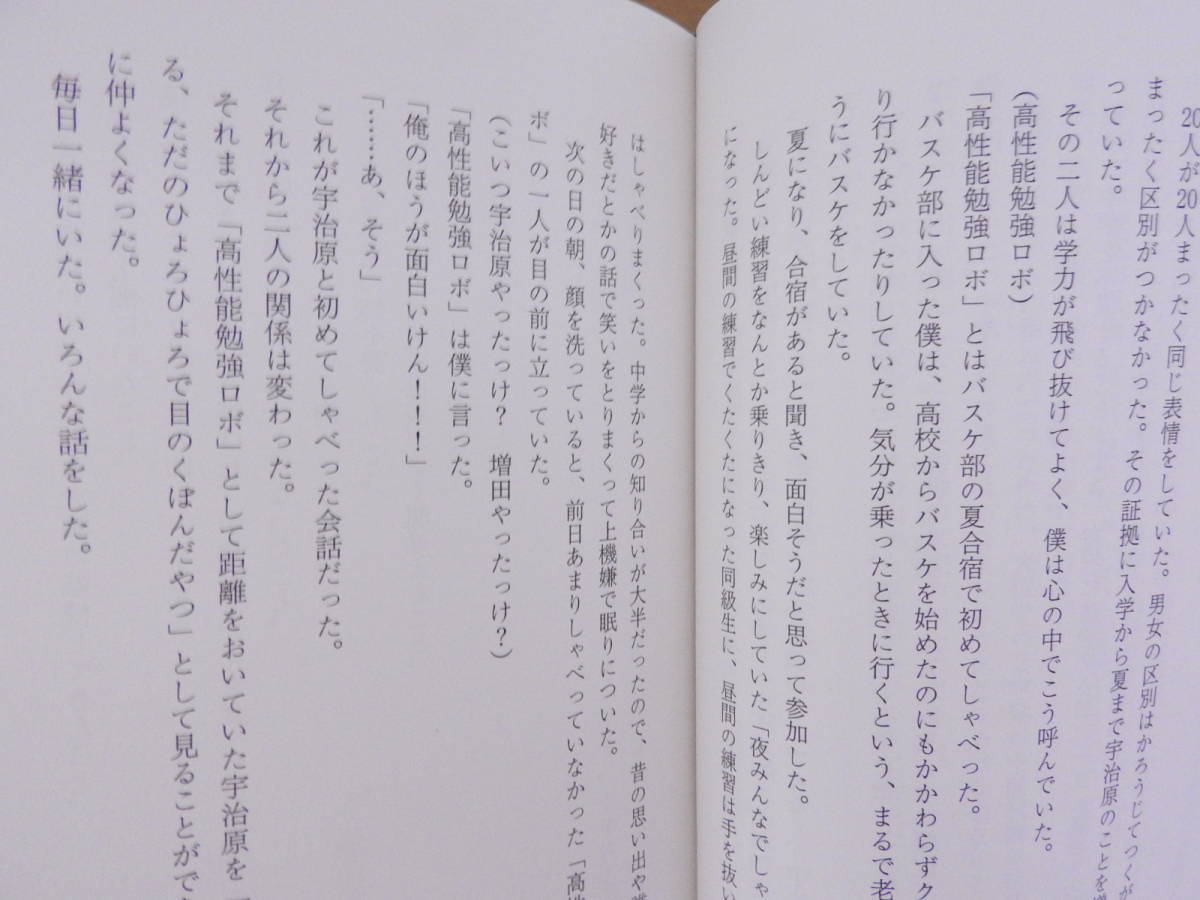 20人が20人まったく同じ表情をしていた。男女の区別はかろうじてつくが
まったく区別がつかなかった。その証拠に入学から夏まで宇治原のことを増
っていた。
その二人は学力が飛び抜けてよく、僕は心の中でこう呼んでいた。
(高性能勉強ロボ)
「高性能勉強ロボ」とはバスケ部の夏合宿で初めてしゃべった。
バスケ部に入った僕は、高校からバスケを始めたのにもかかわらずク
り行かなかったりしていた。気分が乗ったときに行くという、まるで老
うにバスケをしていた。
夏になり、合宿があると聞き、面白そうだと思って参加した。
しんどい練習をなんとか乗りきり、楽しみにしていた「夜みんなでしゃ
になった。昼間の練習でくたくたになった同級生に、昼間の練習は手を抜い
はしゃべりまくった。中学からの知り合いが大半だったので、昔の思い出や
好きだとかの話で笑いをとりまくって上機嫌で眠りについた。
次の日の朝、顔を洗っていると、前日あまりしゃべっていなかった「高性
ボ」の一人が目の前に立っていた。
(こいつ宇治原やったっけ? 増田やったっけ?)
「高性能勉強ロボ」は僕に言った。
「俺のほうが面白いけん!!!」
「……あ、そう」
これが宇治原と初めてしゃべった会話だった。
それから二人の関係は変わった。
それまで「高性能勉強ロボ」として距離をおいていた宇治原を「
る、ただのひょろひょろで目のくぼんだやつ」として見ることができ
に仲よくなった。
毎日一緒にいた。いろんな話をした。